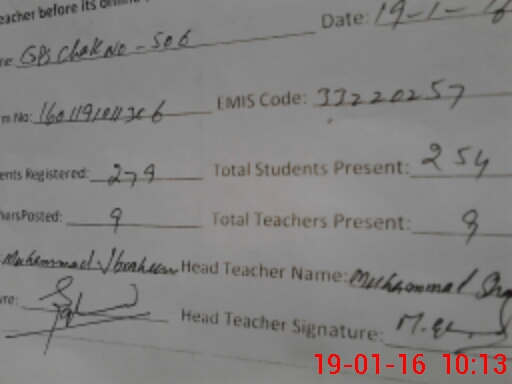 eacher before its online
Date: 19-1-16
re: GPS Chak No - 506
m No: 160119101306 EMIS Code: 33220257
ents Registered: 279 Total Students Present: 254
hersPosted: 9 Total Teachers Present: 9
Muhammad Ibraheem Head Teacher Name: Muhammad
ure: Head Teacher Signature:
19-01-16 10:13